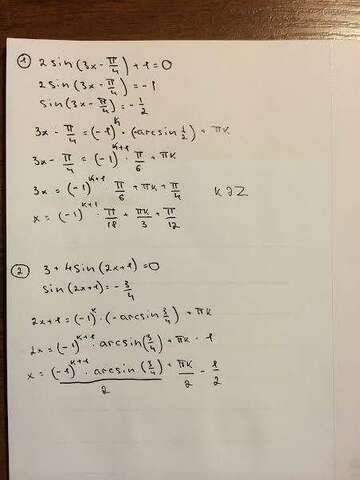 ① 2 sin (3x - π/4) + 1 = 0
2 sin (3x - π/4) = -1
sin (3x - π/4) = -1/2
3x - π/4 = (-1)^k · (-arcsin 1/2) + πk
3x - π/4 = (-1)^(k+1) · π/6 + πk
3x = (-1)^(k+1) · π/6 + πk + π/4 k ∂ Z
x = (-1)^(k+1) · π/18 + πk/3 + π/12
② 3 + 4 sin (2x+1) = 0
sin (2x+1) = -3/4
2x+1 = (-1)^k · (-arcsin 3/4) + πk
2x = (-1)^(k+1) · arcsin (3/4) + πk - 1
x = (-1)^(k+1) · arcsin (3/4) / 2 + πk/2 - 1/2